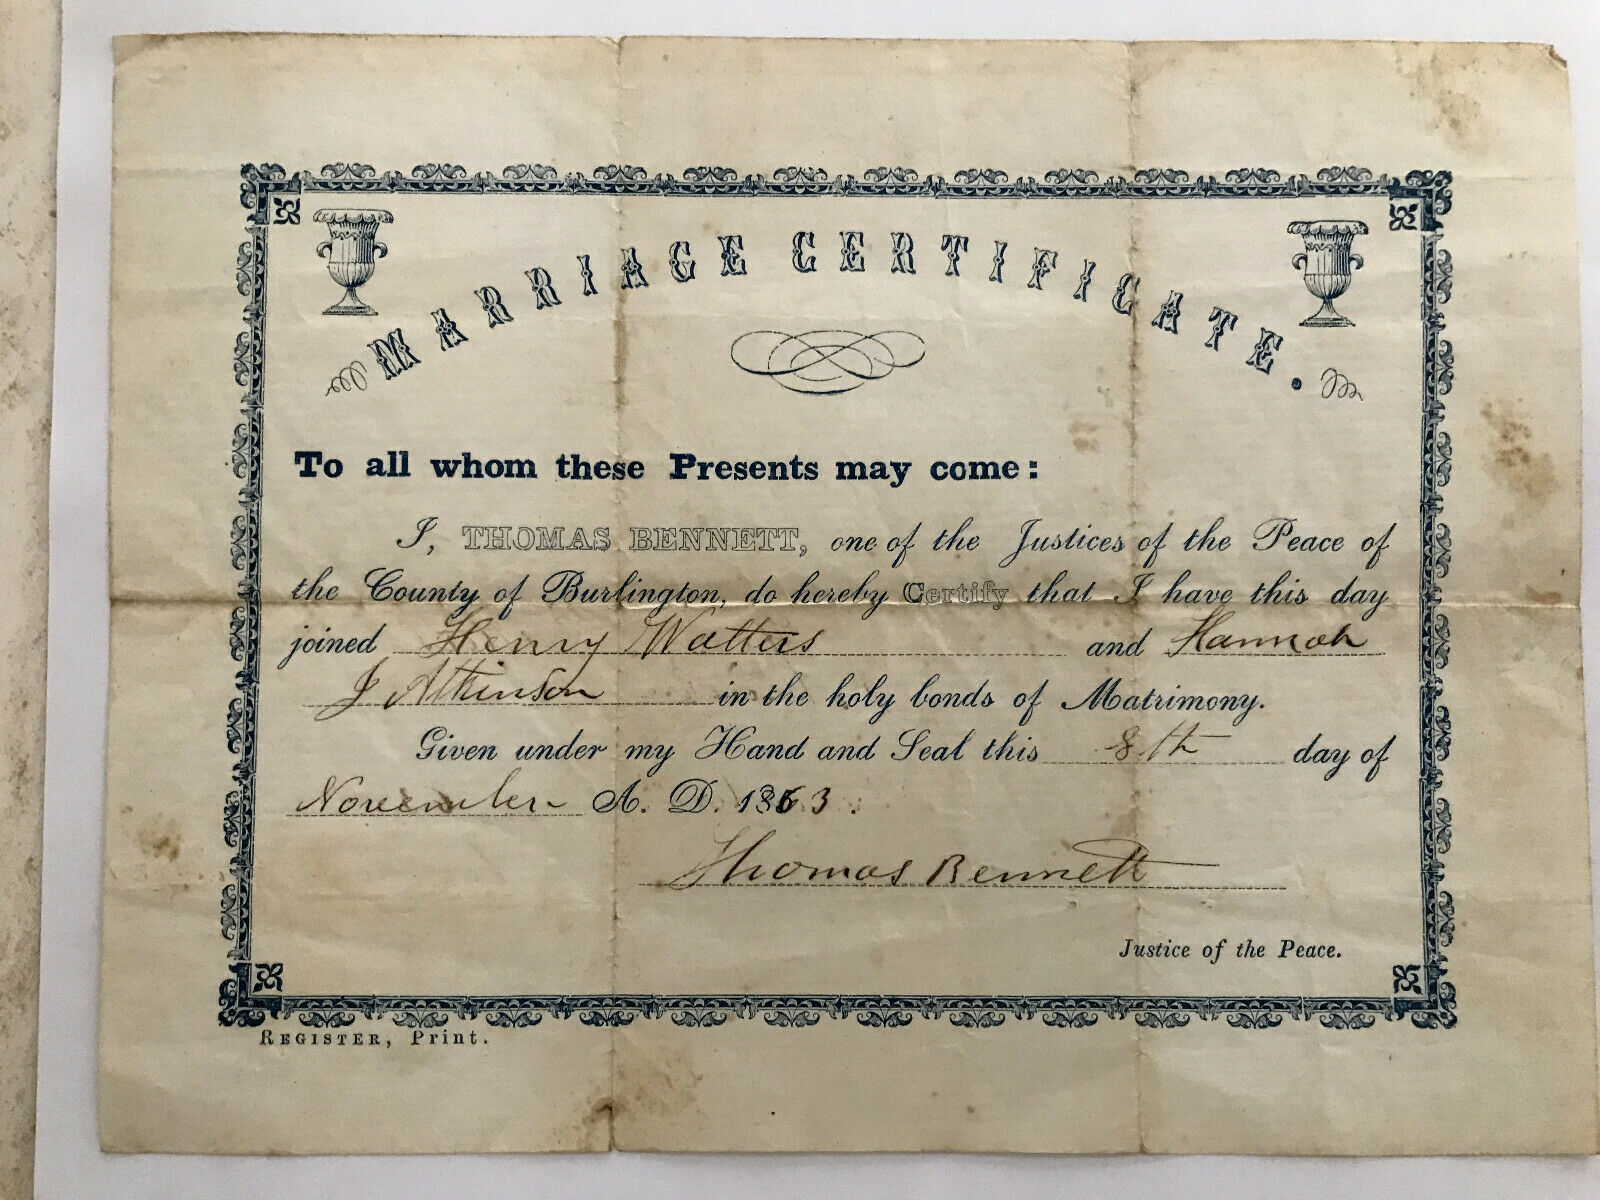 MARRIAGE CERTIFICATE.
To all whom these Presents may come:
I, THOMAS BENNETT, one of the Justices of the Peace of
the County of Burlington, do hereby Certify that I have this day
joined Henry Watters and Hannah
J Atkinson in the holy bonds of Matrimony.
Given under my Hand and Seal this 8th day of
November A. D. 1863.
Thomas Bennett
Justice of the Peace.
REGISTER, Print.